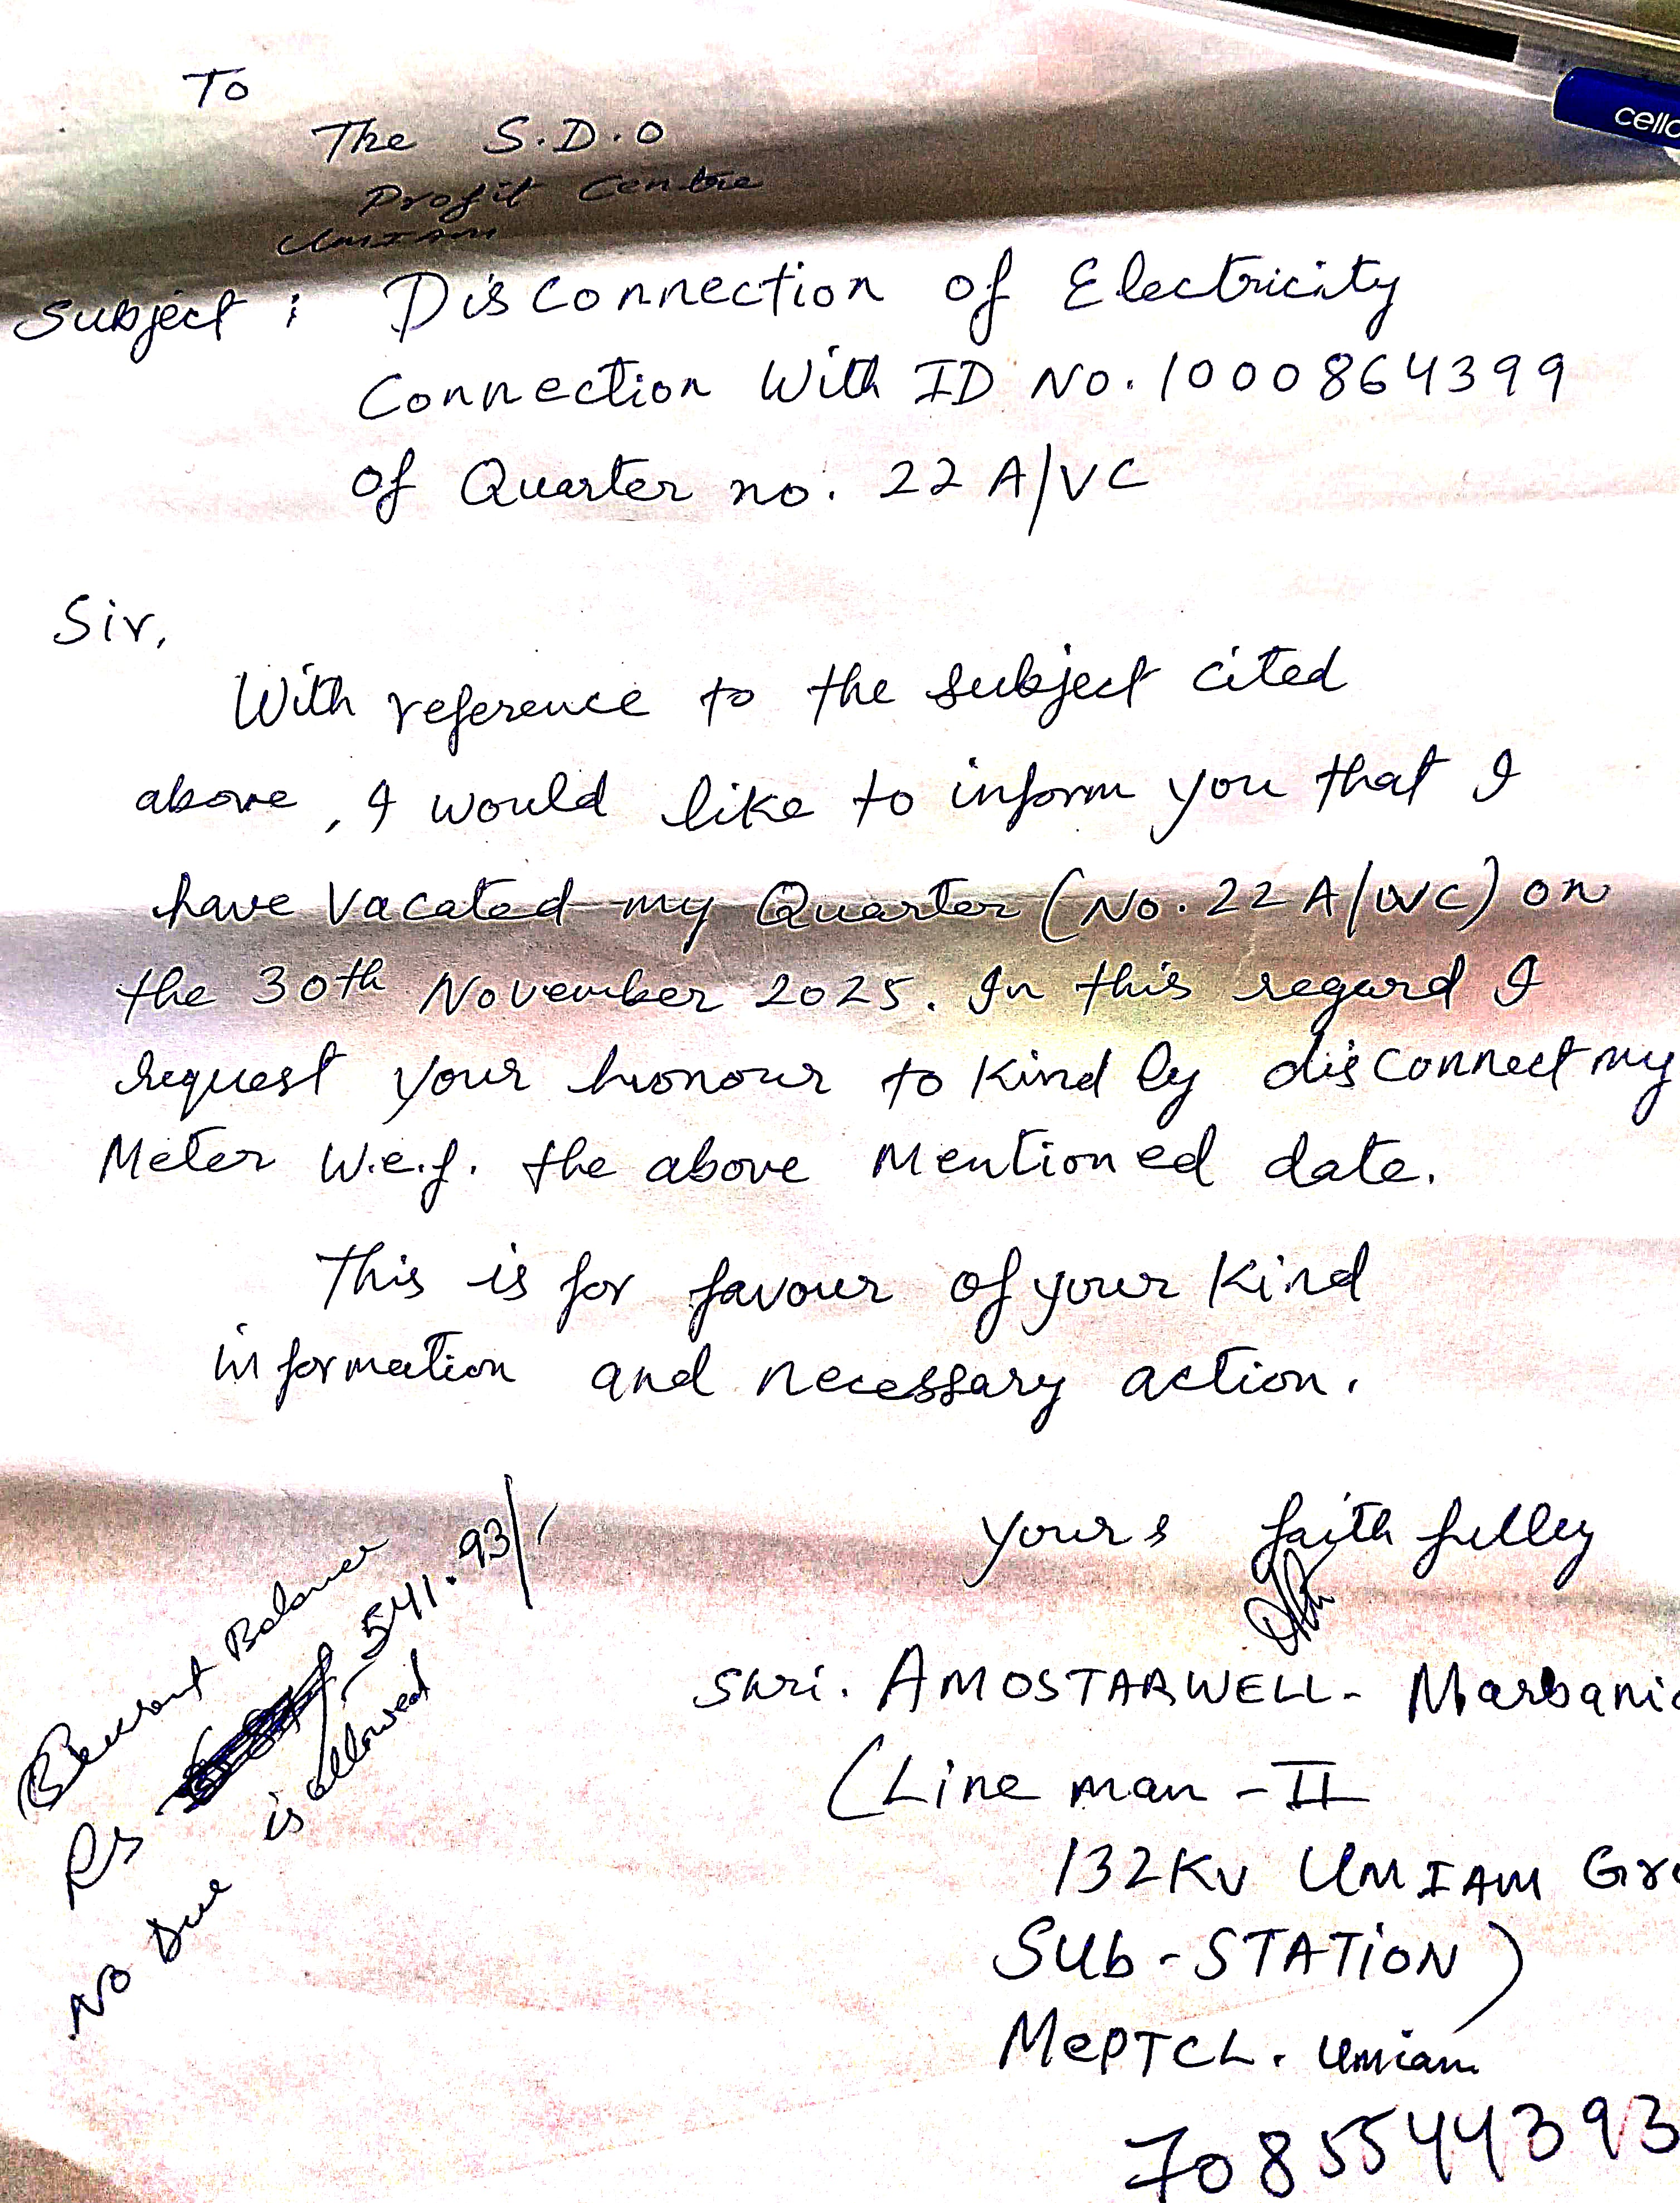 cello
To
The S.D.O
Profit Centre
Umiam
Subject : Disconnection of Electricity
Connection With ID No. 1000864399
of Quarter no. 22 A/VC
Sir,
With reference to the subject cited
above, I would like to inform you that I
have Vacated my Quarter (No. 22 A/VC) on
the 30th November 2025. In this regard I
request your honour to Kindly disconnect my
Meter W.e.f. the above Mentioned date.
This is for favour of your Kind
information and necessary action.
Yours faithfully
Shri. AMOSTARWELL - Marbani
(Line man - II
132KV UMIAM Gr
SUb - STATION)
MePTCL. Umiam
7085544393
Current Balance
Rs 541.93/-
No Due is allowed